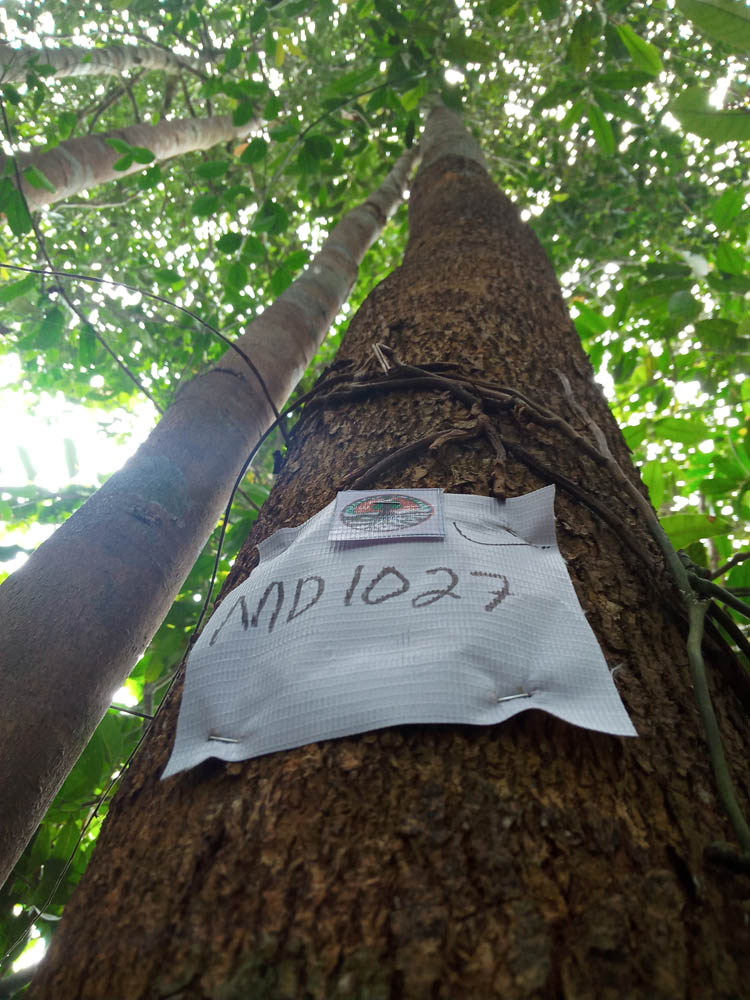 MD 1027